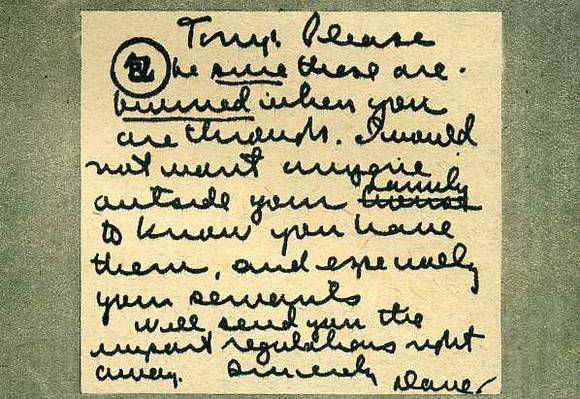 Tony: Please
be sure these are
burned when you
are through. I would
not want anyone
family
outside your house
to know you have
them, and especially
your servants
Will send you the
import regulations right
away. Sincerely Dave